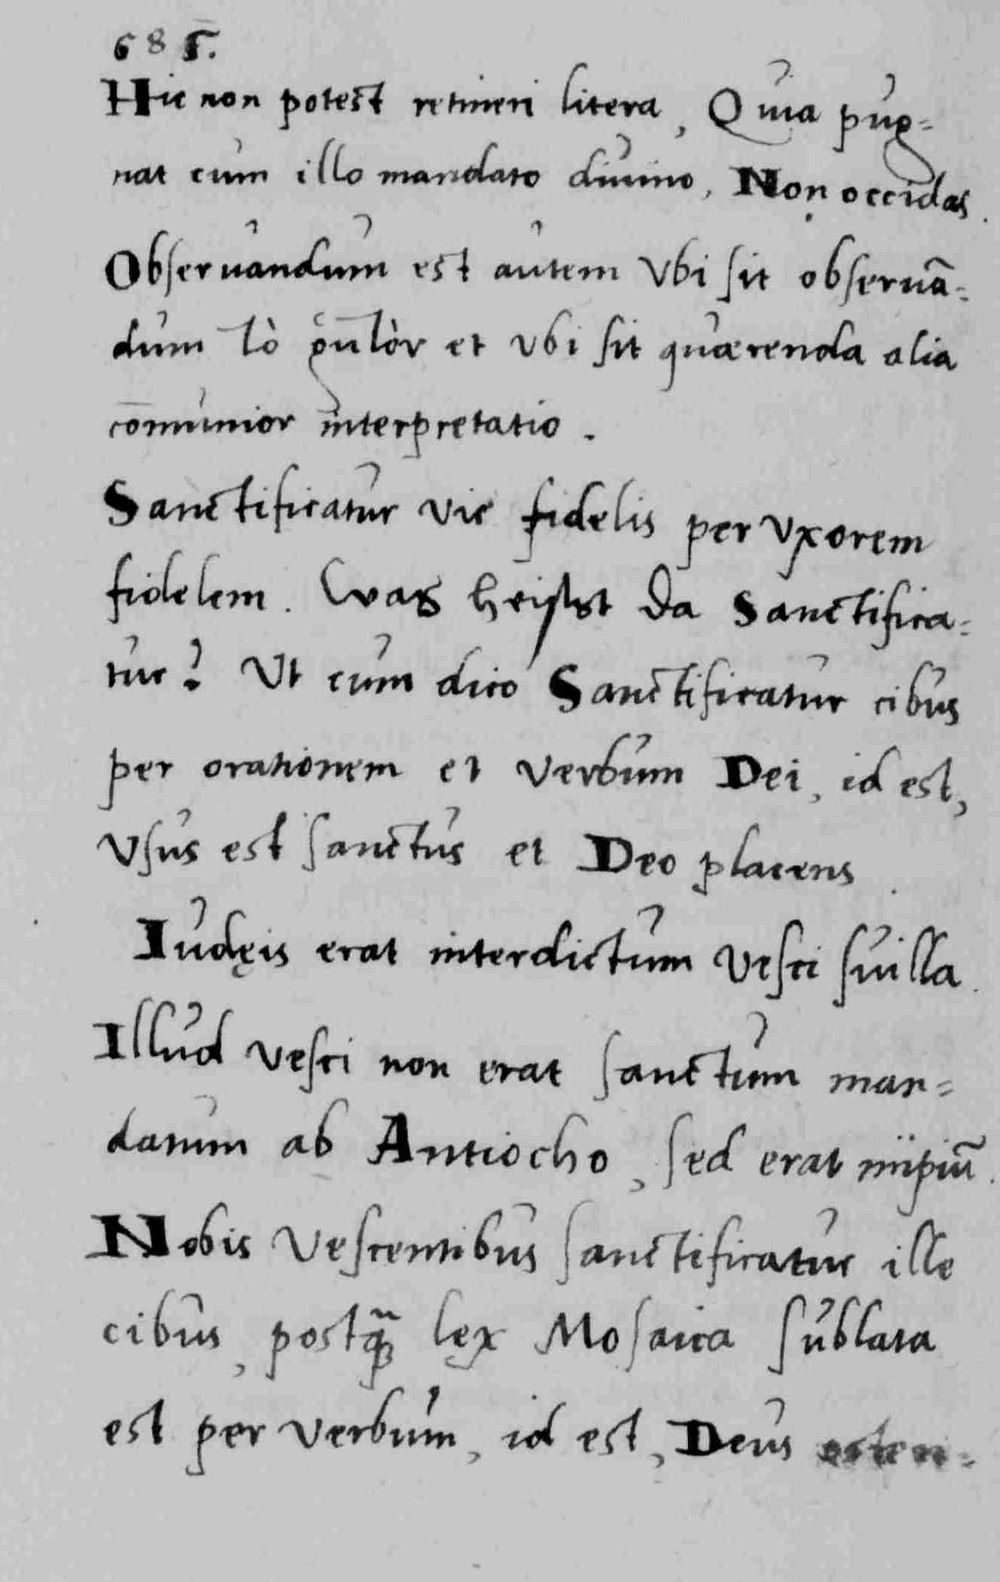 685.
Hic non potest retineri litera, Quia pug=
nat cum illo mandato diuino, Non occidas.
Obseruandum est autem Vbi sit obseruā=
dum τὸ ῥητὸν et vbi sit quærenda alia
cōmunior interpretatio.
Sanctificatur vir fidelis per vxorem
fidelem. Was heisst da Sanctifica=
tur? Ut cum dico Sanctificatur cibus
per orationem et verbum Dei, id est,
Vsus est sanctus et Deo placens
Iudęis erat interdictum vesci suilla.
Illud vesci non erat sanctum man=
datum ab Antiocho, sed erat impiū.
Nobis vescentibus sanctificatur ille
cibus, postꝗ̃ lex Mosaica sublata
est per verbum, id est, Deus osten=